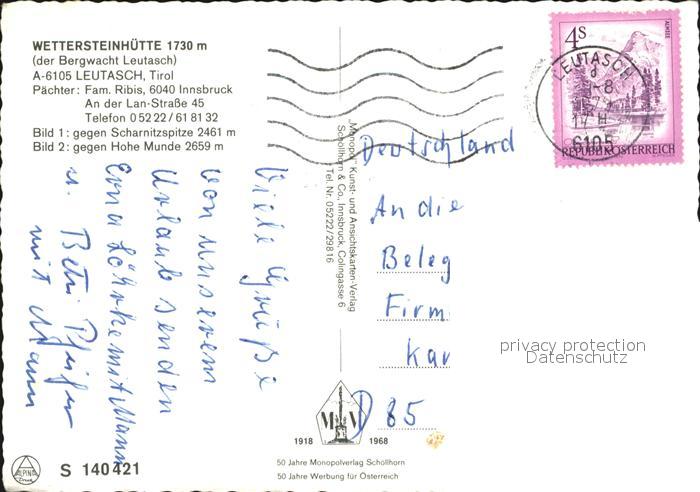 WETTERSTEINHÜTTE 1730 m
(der Bergwacht Leutasch)
A-6105 LEUTASCH, Tirol
Pächter: Fam. Ribis, 6040 Innsbruck
An der Lan-Straße 45
Telefon 05222/618132
Bild 1: gegen Scharnitzspitze 2461 m
Bild 2: gegen Hohe Munde 2659 m
Viele Grüße
von unserem
Urlaub senden
Erna mit Mann
u. Betri Pfeifer
mit Mann
"Monopol" Kunst- und Ansichtskarten-Verlag
Schöllhorn & Co., Innsbruck, Colingasse 6
Tel. Nr. 05222/29816
4S
ALMSEE
REPUBLIK ÖSTERREICH
LEUTASCH
6105
Deutschland
An die
Beleg
Firm
Kar
D 85
privacy protection
Datenschutz
M V
1918 1968
50 Jahre Monopolverlag Schöllhorn
50 Jahre Werbung für Österreich
ALPINA
Druck
S 140421